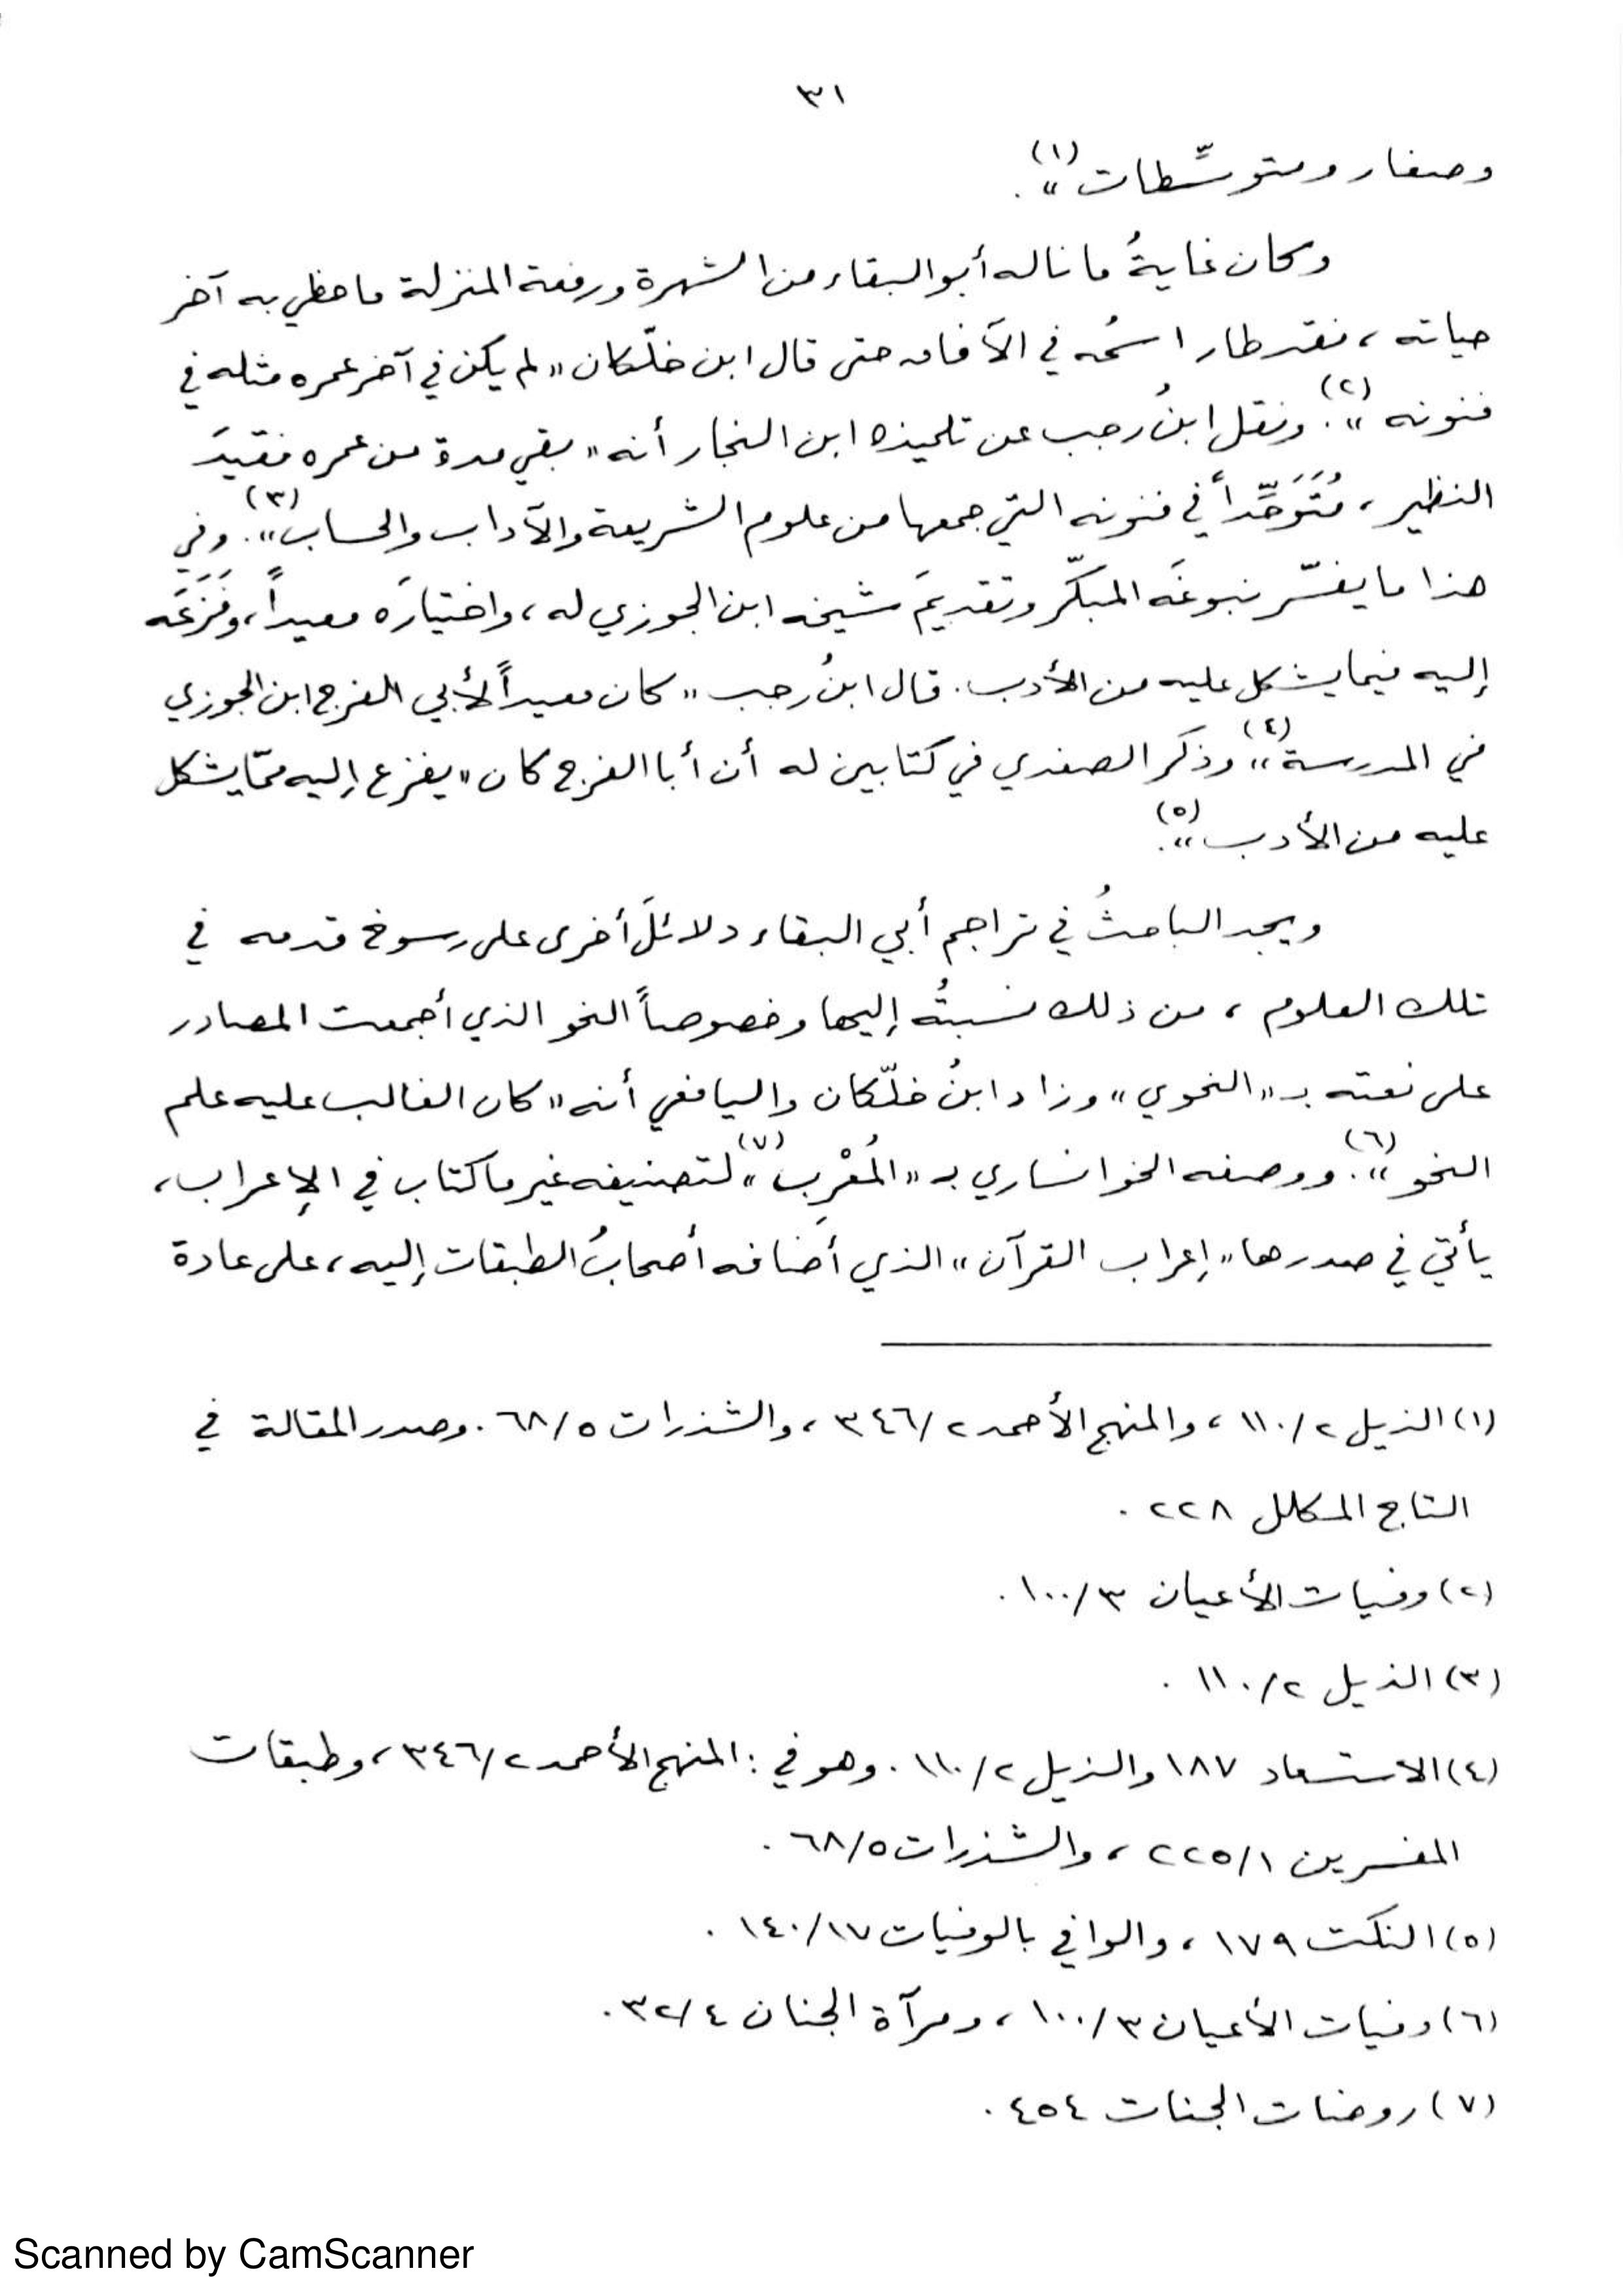 ٣١
وصغار ومتوسِّطات»(١).
وكان غايةُ ما ناله أبو البقاء من الشهرة ورفعة المنزلة ما حظي به آخر
حياته، فقد طار اسمُه في الآفاق حتى قال ابن خلّكان «لم يكن في آخر عمره مثله في
فنونه»(٢). ونقل ابنُ رجب عن تلميذه ابن النجار أنه «بقي مدة من عمره فقيدَ
النظير، مُتَوَحِّداً في فنونه التي جمعها من علوم الشريعة والآداب والحساب»(٣). وفي
هذا ما يفسّر نبوغَه المبكّر وتقديمَ شيخه ابن الجوزي له، واختيارَه معيداً، وفَزَعَه
إليه فيما يشكل عليه من الأدب. قال ابنُ رجب «كان معيداً لأبي الفرج ابن الجوزي
في المدرسة»(٤) وذكر الصفدي في كتابين له أن أبا الفرج كان «يفزع إليه ممّا يشكل
عليه من الأدب»(٥).
ويجد الباحثُ في تراجم أبي البقاء دلائلَ أخرى على رسوخ قدمه في
تلك العلوم، من ذلك نسبتُه إليها وخصوصاً النحو الذي أجمعت المصادر
على نعته بـ «النحوي» وزاد ابنُ خلّكان واليافعي أنه «كان الغالب عليه علم
النحو»(٦). ووصفه الخوانساري بـ «المُعْرِب»(٧) لتصنيفه غير ما كتاب في الإعراب،
يأتي في صدرها «إعراب القرآن» الذي أضافه أصحابُ الطبقات إليه، على عادة
(١) الذيل ٢/١١٠، والمنهج الأحمد ٢/٣٤٦، والشذرات ٥/٦٨. وصدر المقالة في
التاج المكلل ٢٢٨.
(٢) وفيات الأعيان ٣/١٠٠.
(٣) الذيل ٢/١١٠.
(٤) الاستسعاد ١٨٧ والذيل ٢/١١٠. وهو في: المنهج الأحمد ٢/٣٤٦، وطبقات
المفسرين ١/٢٢٥، والشذرات ٥/٦٨.
(٥) النكت ١٧٩، والوافي بالوفيات ١٧/١٤٠.
(٦) وفيات الأعيان ٣/١٠٠، ومرآة الجنان ٤/٣٢.
(٧) روضات الجنات ٤٥٤.
Scanned by CamScanner